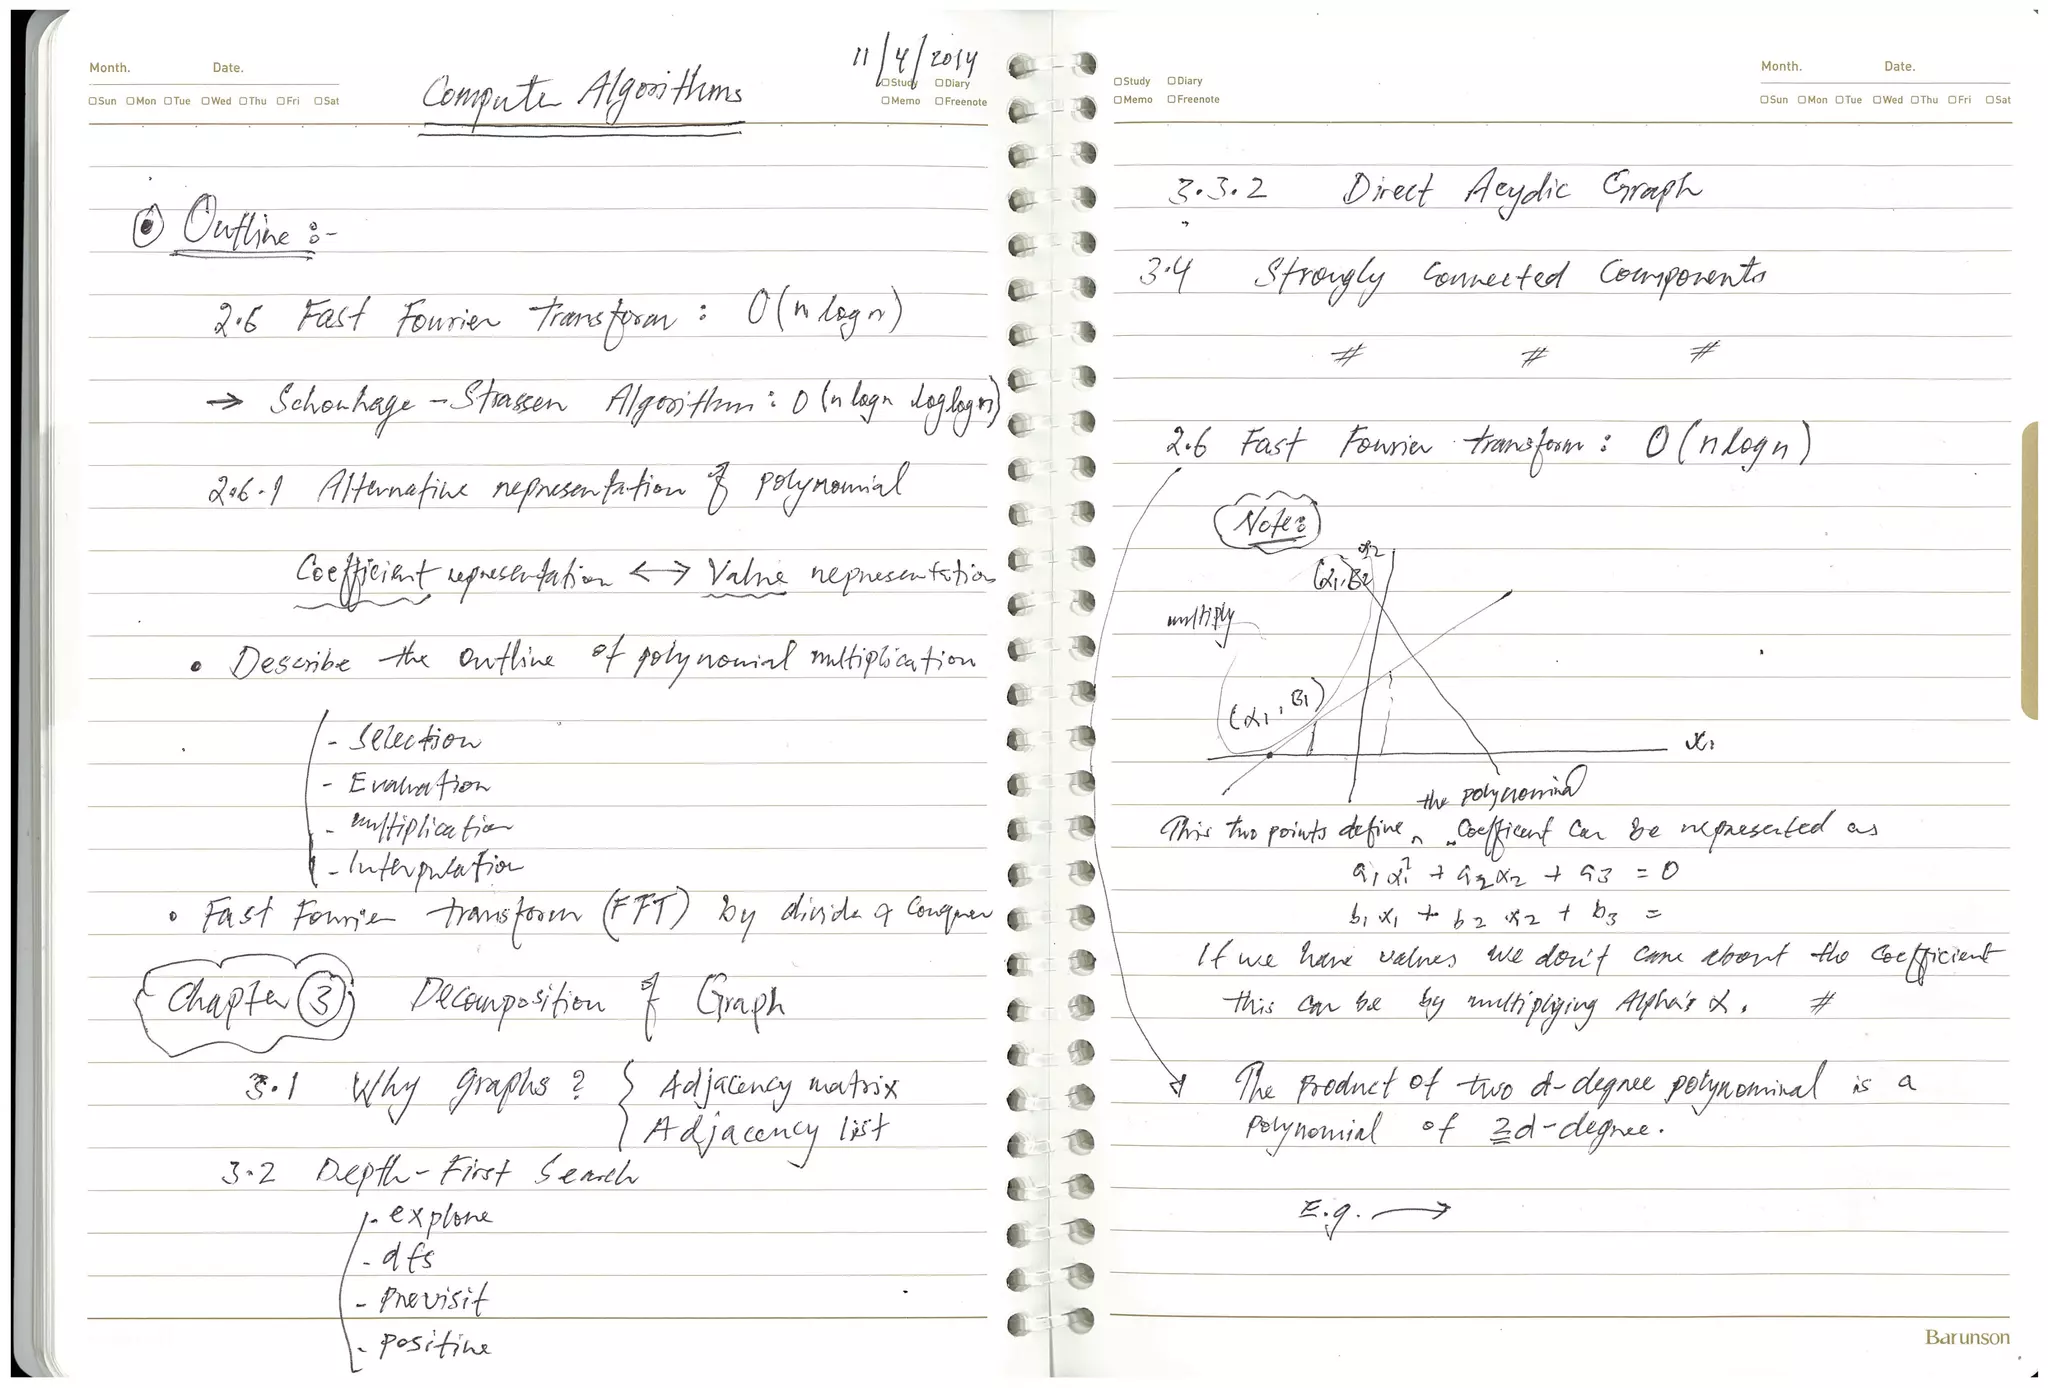 Month. Date.
□Sun □Mon □Tue □Wed □Thu □Fri □Sat
Computer Algorithms
11/4/2014
□Study □Diary
□Memo □Freenote
Outline :-
2.6 Fast Fourier transform : O(n logn)
→ Schonhage - Strassen Algorithm : O(n logn loglogn)
2.6.1 Alternative representation of polynomial
Coefficient representation ↔ Value representation
• Describe the outline of polynomial multiplication
- Selection
- Evaluation
- multiplication
- Interpolation
• Fast Fourier transform (FFT) by divide & Conquer
Chapter 3 Decomposition of Graph
3.1 Why graphs? { Adjacency matrix
Adjacency list
3.2 Depth-First Search
- explore
- dfs
- previsit
- positive
□Study □Diary
□Memo □Freenote
Month. Date.
□Sun □Mon □Tue □Wed □Thu □Fri □Sat
3.3.2 Direct Acydic Graph
3.4 Strongly Connected Components
# # #
2.6 Fast Fourier transform : O(n logn)
Note:
x2
(α1, B2
multiply
(α1, B1)
x1
the polynominal
This two points define, Coefficient Can be represented as
a1x1² + a2x2 + a3 = 0
b1x1 + b2x2 + b3 =
If we have values we don't care about the coefficient
this can be by multiplying Alpha's α. #
The product of two d-degree polynominal is a
polynomial of 2d-degree.
E.g. →
Barunson